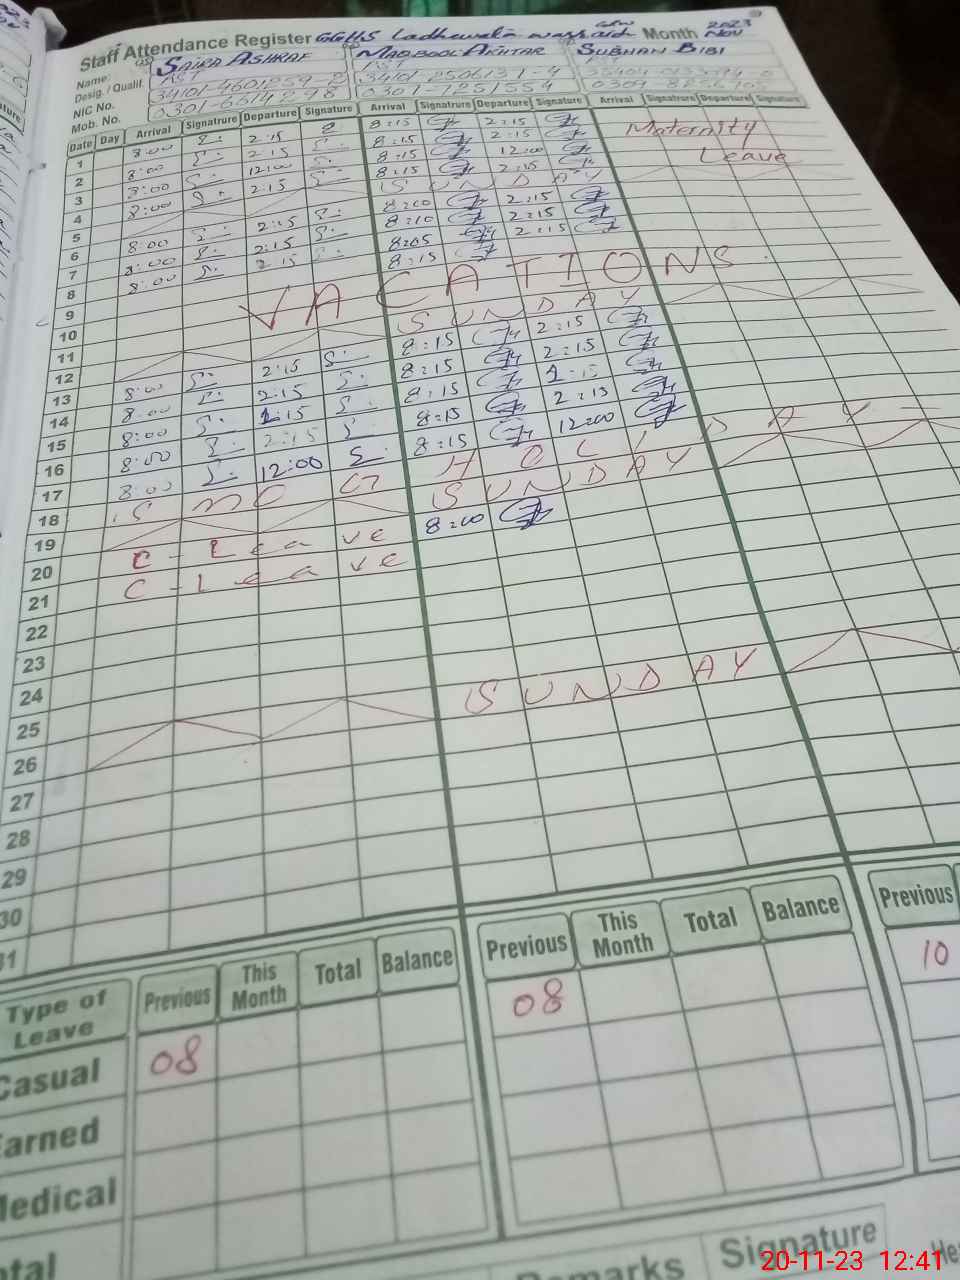 Staff Attendance Register GGHS Ladhewala warraich Month Nov 2023
Name: SAIRA ASHRAF MAQBOOL AKHTAR SUBHAN BIBI
Desig. / Qualif. PST PST
NIC No. 34101-4601259-2 34101-2506131-4
Mob. No. 0301-6614298 0301-7251554
Date Day Arrival Signatrure Departure Signature Arrival Signatrure Departure Signature Arrival Signatrure Departure Signature
1 8:00 2:15 8:15 2:15 Maternity
2 8:00 2:15 8:15 2:15 Leave
3 8:00 12:00 8:15 12:00
4 8:00 2:15 8:15 2:15
5 SUNDAY
6 8:00 2:15 8:00 2:15
7 8:00 2:15 8:10 2:15
8 8:00 2:15 8:05 2:15
9 8:15
10 VACATIONS
11
12 SUNDAY
13 8:00 2:15 8:15 2:15
14 8:00 2:15 8:15 2:15
15 8:00 2:15 8:15 2:15
16 8:00 2:15 8:15 2:15
17 8:00 12:00 8:15 12:00
18 SMOG HOLIDAY
19 SUNDAY
20 C-Leave 8:00
21 C-Leave
22
23
24
25
26 SUNDAY
27
28
29
30
31
Type of Leave Previous This Month Total Balance Previous This Month Total Balance Previous
Casual 08 08 10
Earned
Medical
Total
Remarks Signature
20-11-23 12:41